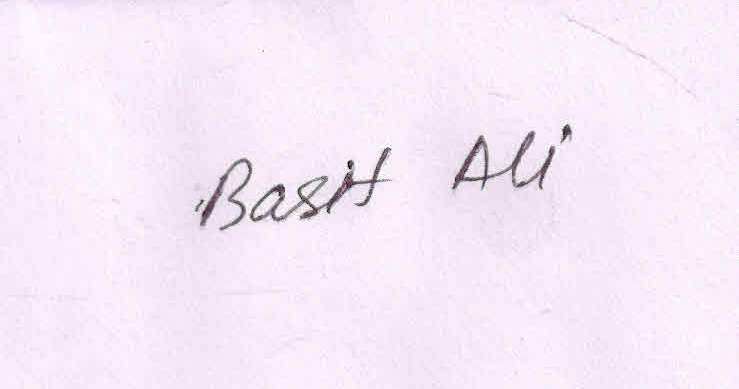 Basit Ali